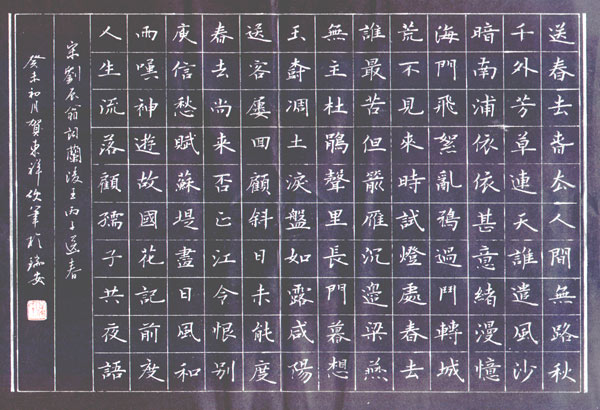 送春去旾厺人間無路秋
千外芳草連天誰遣風沙
暗南浦依依甚意緒漫憶
海門飛絮亂鴉過鬥轉城
荒不見來時試燈處春去
誰最苦但雁沉邊梁燕
無主杜鵑聲里長門暮想
玉尌凋土淚盤如露咸陽
送客屢回顧斜日未能度
春去尚來否正江令恨別
庾信愁賦蘇堤盡日風和
雨嘆神遊故國花記前度
人生流落顧孺子共夜語
宋劉辰翁詞蘭陵王丙子送春
癸未初月賀東祥筆於瑞安